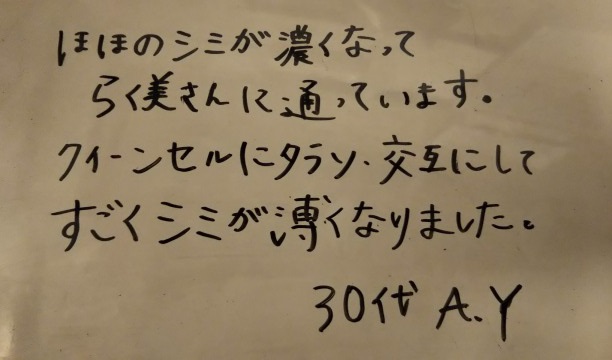 ほほのシミが濃くなって
らく美さんに通っています。
クイーンセルにタラソ、交互にして
すごくシミが薄くなりました。
30代 A.Y